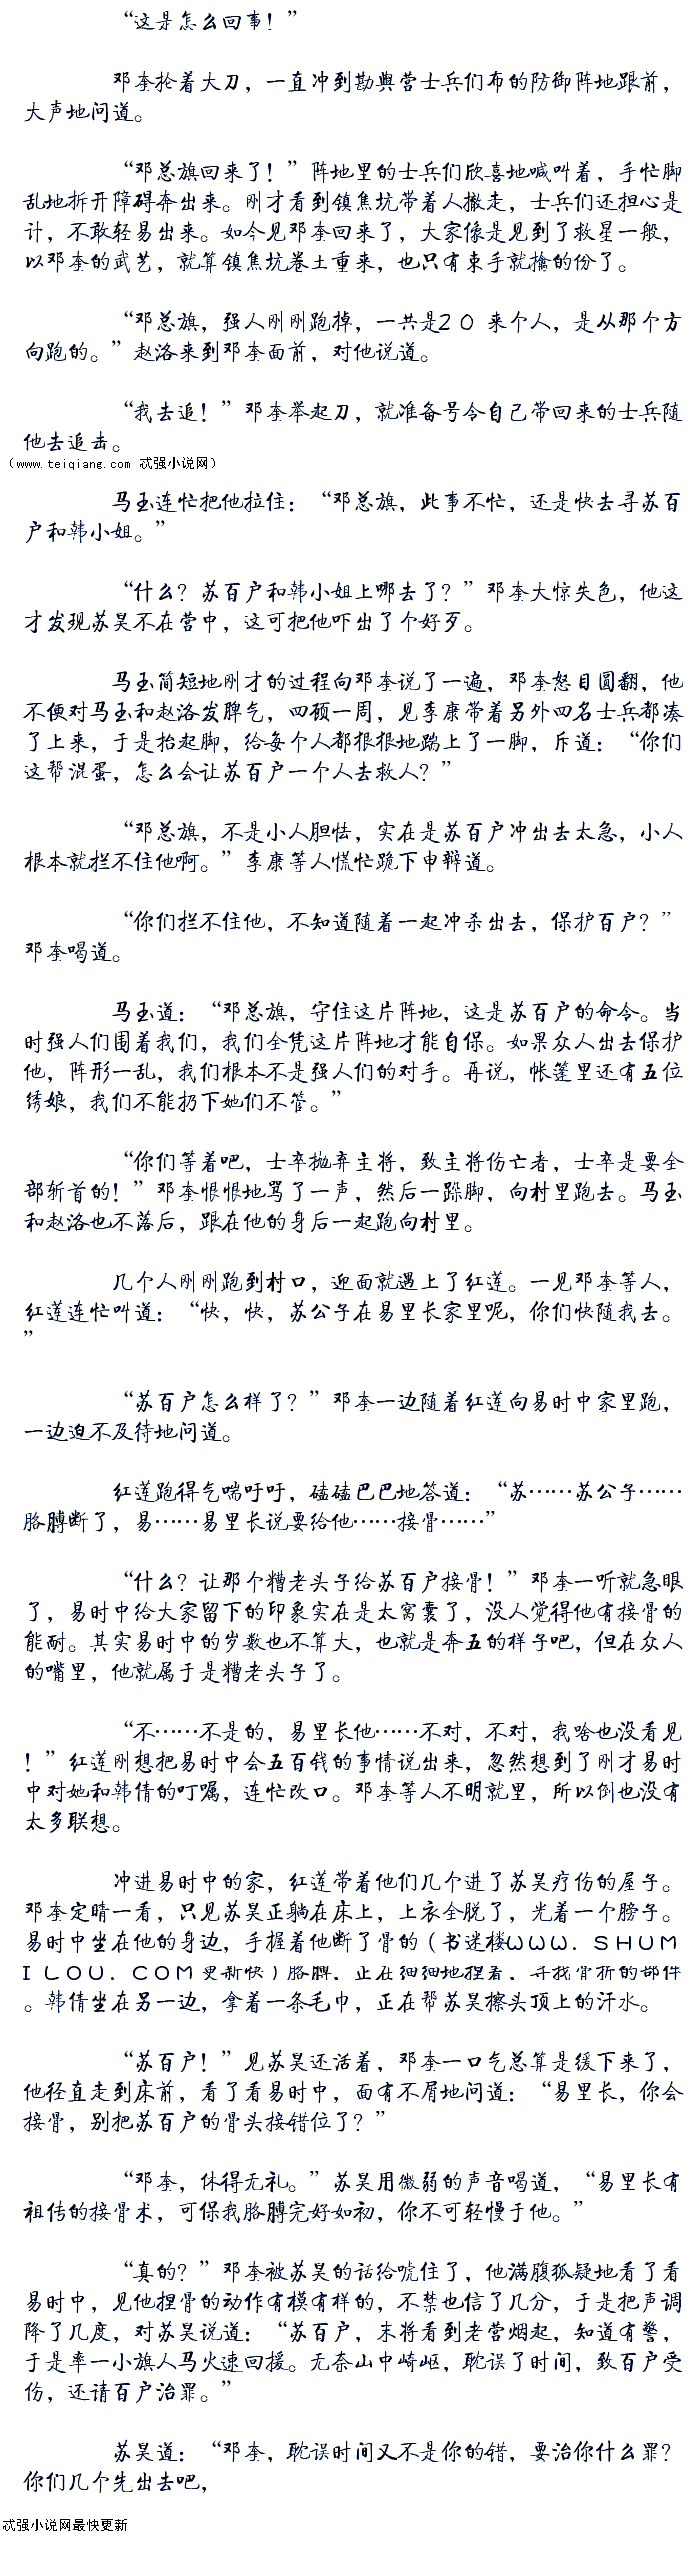 “这是怎么回事！”
邓奎拎着大刀，一直冲到勘舆营士兵们布的防御阵地跟前，
大声地问道。
“邓总旗回来了！”阵地里的士兵们欣喜地喊叫着，手忙脚
乱地拆开障碍奔出来。刚才看到镇焦坑带着人撤走，士兵们还担心是
计，不敢轻易出来。如今见邓奎回来了，大家像是见到了救星一般，
以邓奎的武艺，就算镇焦坑卷土重来，也只有束手就擒的份了。
“邓总旗，强人刚刚跑掉，一共是20来个人，是从那个方
向跑的。”赵洛来到邓奎面前，对他说道。
“我去追！”邓奎举起刀，就准备号令自己带回来的士兵随
他去追击。
（www.teiqiang.com 忒强小说网）
马玉连忙把他拉住：“邓总旗，此事不忙，还是快去寻苏百
户和韩小姐。”
“什么？苏百户和韩小姐上哪去了？”邓奎大惊失色，他这
才发现苏昊不在营中，这可把他吓出了个好歹。
马玉简短地刚才的过程向邓奎说了一遍，邓奎怒目圆翻，他
不便对马玉和赵洛发脾气，四顾一周，见李康带着另外四名士兵都凑
了上来，于是抬起脚，给每个人都狠狠地踹上了一脚，斥道：“你们
这帮混蛋，怎么会让苏百户一个人去救人？”
“邓总旗，不是小人胆怯，实在是苏百户冲出去太急，小人
根本就拦不住他啊。”李康等人慌忙跪下申辩道。
“你们拦不住他，不知道随着一起冲杀出去，保护百户？”
邓奎喝道。
马玉道：“邓总旗，守住这片阵地，这是苏百户的命令。当
时强人们围着我们，我们全凭这片阵地才能自保。如果众人出去保护
他，阵形一乱，我们根本不是强人们的对手。再说，帐篷里还有五位
绣娘，我们不能扔下她们不管。”
“你们等着吧，士卒抛弃主将，致主将伤亡者，士卒是要全
部斩首的！”邓奎恨恨地骂了一声，然后一跺脚，向村里跑去。马玉
和赵洛也不落后，跟在他的身后一起跑向村里。
几个人刚刚跑到村口，迎面就遇上了红莲。一见邓奎等人，
红莲连忙叫道：“快，快，苏公子在易里长家里呢，你们快随我去。
”
“苏百户怎么样了？”邓奎一边随着红莲向易时中家里跑，
一边迫不及待地问道。
红莲跑得气喘吁吁，磕磕巴巴地答道：“苏……苏公子……
胳膊断了，易……易里长说要给他……接骨……”
“什么？让那个糟老头子给苏百户接骨！”邓奎一听就急眼
了，易时中给大家留下的印象实在是太窝囊了，没人觉得他有接骨的
能耐。其实易时中的岁数也不算大，也就是奔五的样子吧，但在众人
的嘴里，他就属于是糟老头子了。
“不……不是的，易里长他……不对，不对，我啥也没看见
！”红莲刚想把易时中会五百钱的事情说出来，忽然想到了刚才易时
中对她和韩倩的叮嘱，连忙改口。邓奎等人不明就里，所以倒也没有
太多联想。
冲进易时中的家，红莲带着他们几个进了苏昊疗伤的屋子。
邓奎定睛一看，只见苏昊正躺在床上，上衣全脱了，光着一个膀子。
易时中坐在他的身边，手握着他断了骨的（书迷楼WWW.SHUM
ILOU.COM更新快）胳膊，正在细细地捏着，寻找骨折的部件
。韩倩坐在另一边，拿着一条毛巾，正在帮苏昊擦头顶上的汗水。
“苏百户！”见苏昊还活着，邓奎一口气总算是缓下来了，
他径直走到床前，看了看易时中，面有不屑地问道：“易里长，你会
接骨，别把苏百户的骨头接错位了？”
“邓奎，休得无礼。”苏昊用微弱的声音喝道，“易里长有
祖传的接骨术，可保我胳膊完好如初，你不可轻慢于他。”
“真的？”邓奎被苏昊的话给唬住了，他满腹狐疑地看了看
易时中，见他捏骨的动作有模有样的，不禁也信了几分，于是把声调
降了几度，对苏昊说道：“苏百户，末将看到老营烟起，知道有警，
于是率一小旗人马火速回援。无奈山中崎岖，耽误了时间，致百户受
伤，还请百户治罪。”
苏昊道：“邓奎，耽误时间又不是你的错，要治你什么罪？
你们几个先出去吧，
忒强小说网最快更新